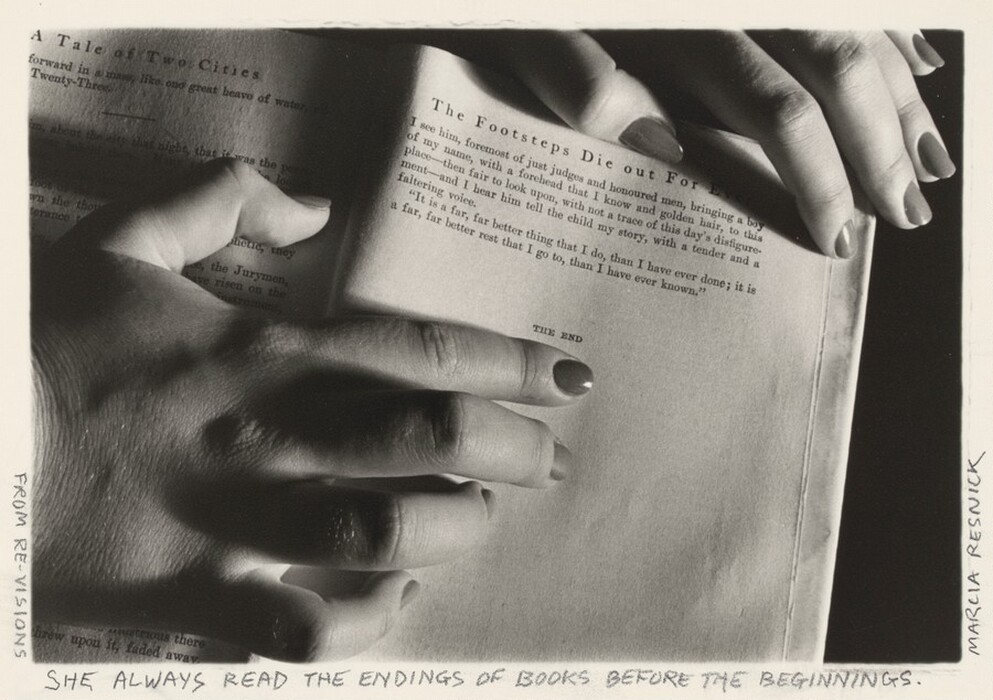 A Tale of Two Cities
forward in a mass, like one great heave of water,
Twenty-Three.
about the city that night, that it was the
they
the Jurymen,
have risen on the
instrument,
there
threw upon it, faded away.
The Footsteps Die out For
I see him, foremost of just judges and honoured men, bringing a boy
of my name, with a forehead that I know and golden hair, to this
place—then fair to look upon, with not a trace of this day's disfigure-
ment—and I hear him tell the child my story, with a tender and a
faltering voice.
"It is a far, far better thing that I do, than I have ever done; it is
a far, far better rest that I go to, than I have ever known."
THE END
FROM RE-VISIONS
MARCIA RESNICK
SHE ALWAYS READ THE ENDINGS OF BOOKS BEFORE THE BEGINNINGS.